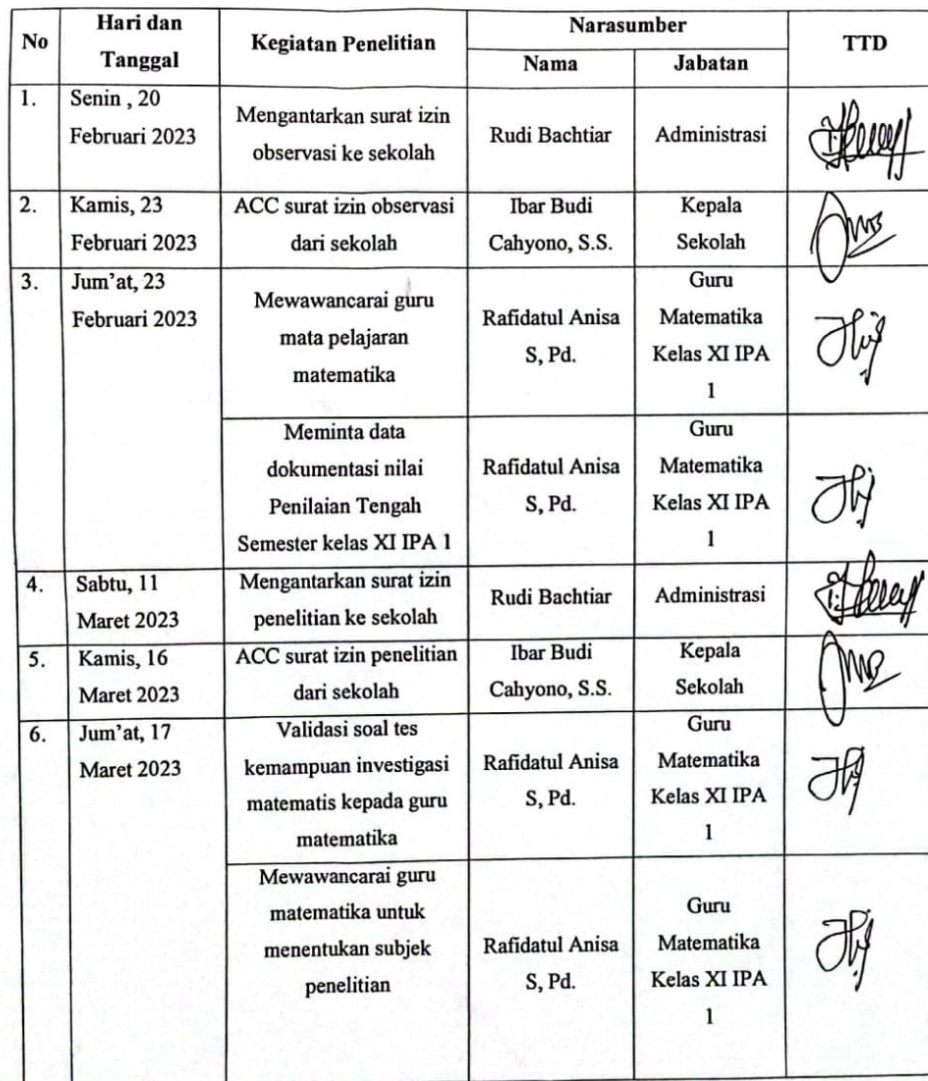 No
Hari dan
Tanggal
Kegiatan Penelitian
Narasumber
TTD
Nama
Jabatan
1.
Senin , 20
Februari 2023
Mengantarkan surat izin
observasi ke sekolah
Rudi Bachtiar
Administrasi
2.
Kamis, 23
Februari 2023
ACC surat izin observasi
dari sekolah
Ibar Budi
Cahyono, S.S.
Kepala
Sekolah
3.
Jum'at, 23
Februari 2023
Mewawancarai guru
mata pelajaran
matematika
Rafidatul Anisa
S, Pd.
Guru
Matematika
Kelas XI IPA
1
Meminta data
dokumentasi nilai
Penilaian Tengah
Semester kelas XI IPA 1
Rafidatul Anisa
S, Pd.
Guru
Matematika
Kelas XI IPA
1
4.
Sabtu, 11
Maret 2023
Mengantarkan surat izin
penelitian ke sekolah
Rudi Bachtiar
Administrasi
5.
Kamis, 16
Maret 2023
ACC surat izin penelitian
dari sekolah
Ibar Budi
Cahyono, S.S.
Kepala
Sekolah
6.
Jum'at, 17
Maret 2023
Validasi soal tes
kemampuan investigasi
matematis kepada guru
matematika
Rafidatul Anisa
S, Pd.
Guru
Matematika
Kelas XI IPA
1
Mewawancarai guru
matematika untuk
menentukan subjek
penelitian
Rafidatul Anisa
S, Pd.
Guru
Matematika
Kelas XI IPA
1